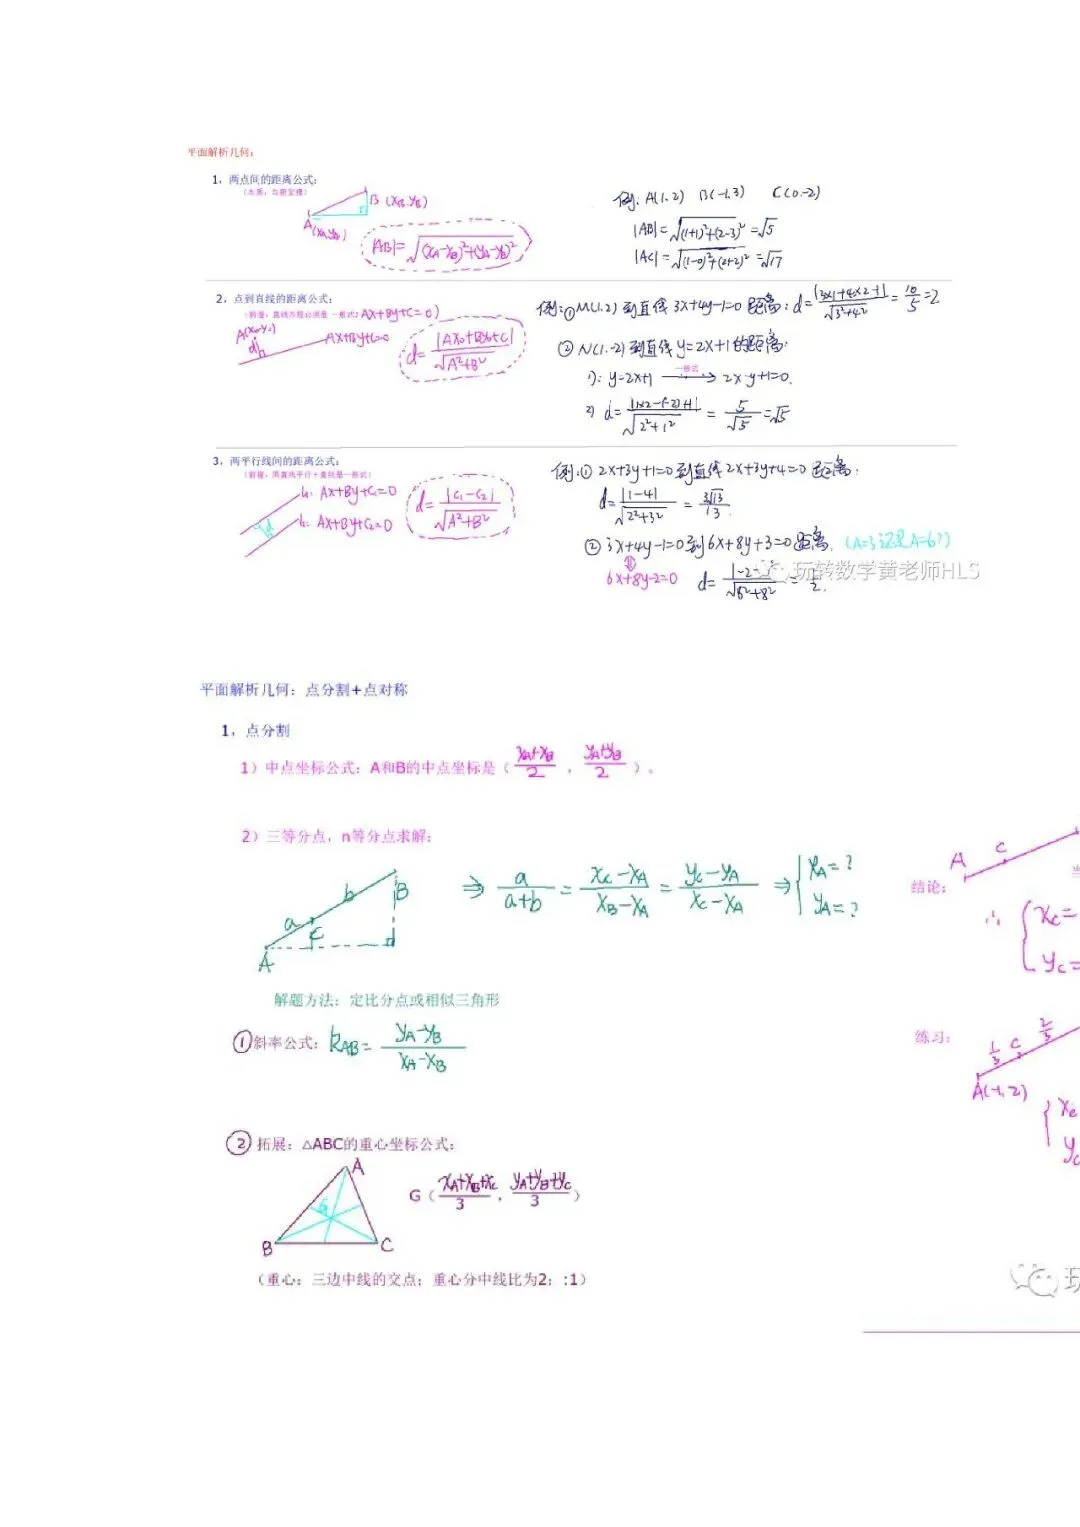 平面解析几何:
1, 两点间的距离公式:
(本质: 勾股定理)
B (XB, YB)
A(XA, YA)
|AB|=√(XA-XB)²+(YA-YB)²
例: A(1,2) B(-1,3) C(0,-2)
|AB|=√(1+1)²+(2-3)²=√5
|AC|=√(1-0)²+(2+2)²=√17
2, 点到直线的距离公式:
(前提: 直线方程必须是 一般式: AX+BY+C=0)
A(X₀,Y₀)
d
AX+BY+C=0
d=|AX₀+BY₀+C|/√A²+B²
例:①M(1,2)到直线 3X+4y-1=0 距离: d=|3×1+4×2-1|/√3²+4²=10/5=2
② N(1,-2)到直线 y=2X+1的距离:
1): y=2X+1 一般式→ 2X-y+1=0.
2) d=|1×2-(-2)+1|/√2²+1²=5/√5=√5
3, 两平行线间的距离公式:
(前提: 两直线平行+直线是一般式)
L₁: AX+BY+C₁=0
d
L₂: AX+BY+C₂=0
d=|C₁-C₂|/√A²+B²
例:① 2X+3y+1=0到直线 2X+3y+4=0 距离:
d=|1-4|/√2²+3²=3√13/13.
② 3X+4y-1=0到6X+8y+3=0 距离. (A=3还是A=6?)
6X+8y-2=0
玩转数学黄老师HLS
平面解析几何: 点分割+点对称
1, 点分割
1) 中点坐标公式: A和B的中点坐标是 ( XA+XB/2 , YA+YB/2 )。
2) 三等分点, n等分点求解:
a b B
A C
⇒ a/a+b = XC-XA/XB-XA = YC-YA/XC-XA ⇒ { XA=? YA=?
解题方法: 定比分点或相似三角形
①斜率公式: kAB= YA-YB/XA-XB
②拓展: △ABC的重心坐标公式:
A
G
B C
G ( XA+XB+XC/3 , YA+YB+YC/3 )
(重心: 三边中线的交点; 重心分中线比为2: :1)
A C
当
结论:
∴ { XC=
YC=
练习:
1/3 C 2/3
A(-1,2)
{ XC
YC
玩